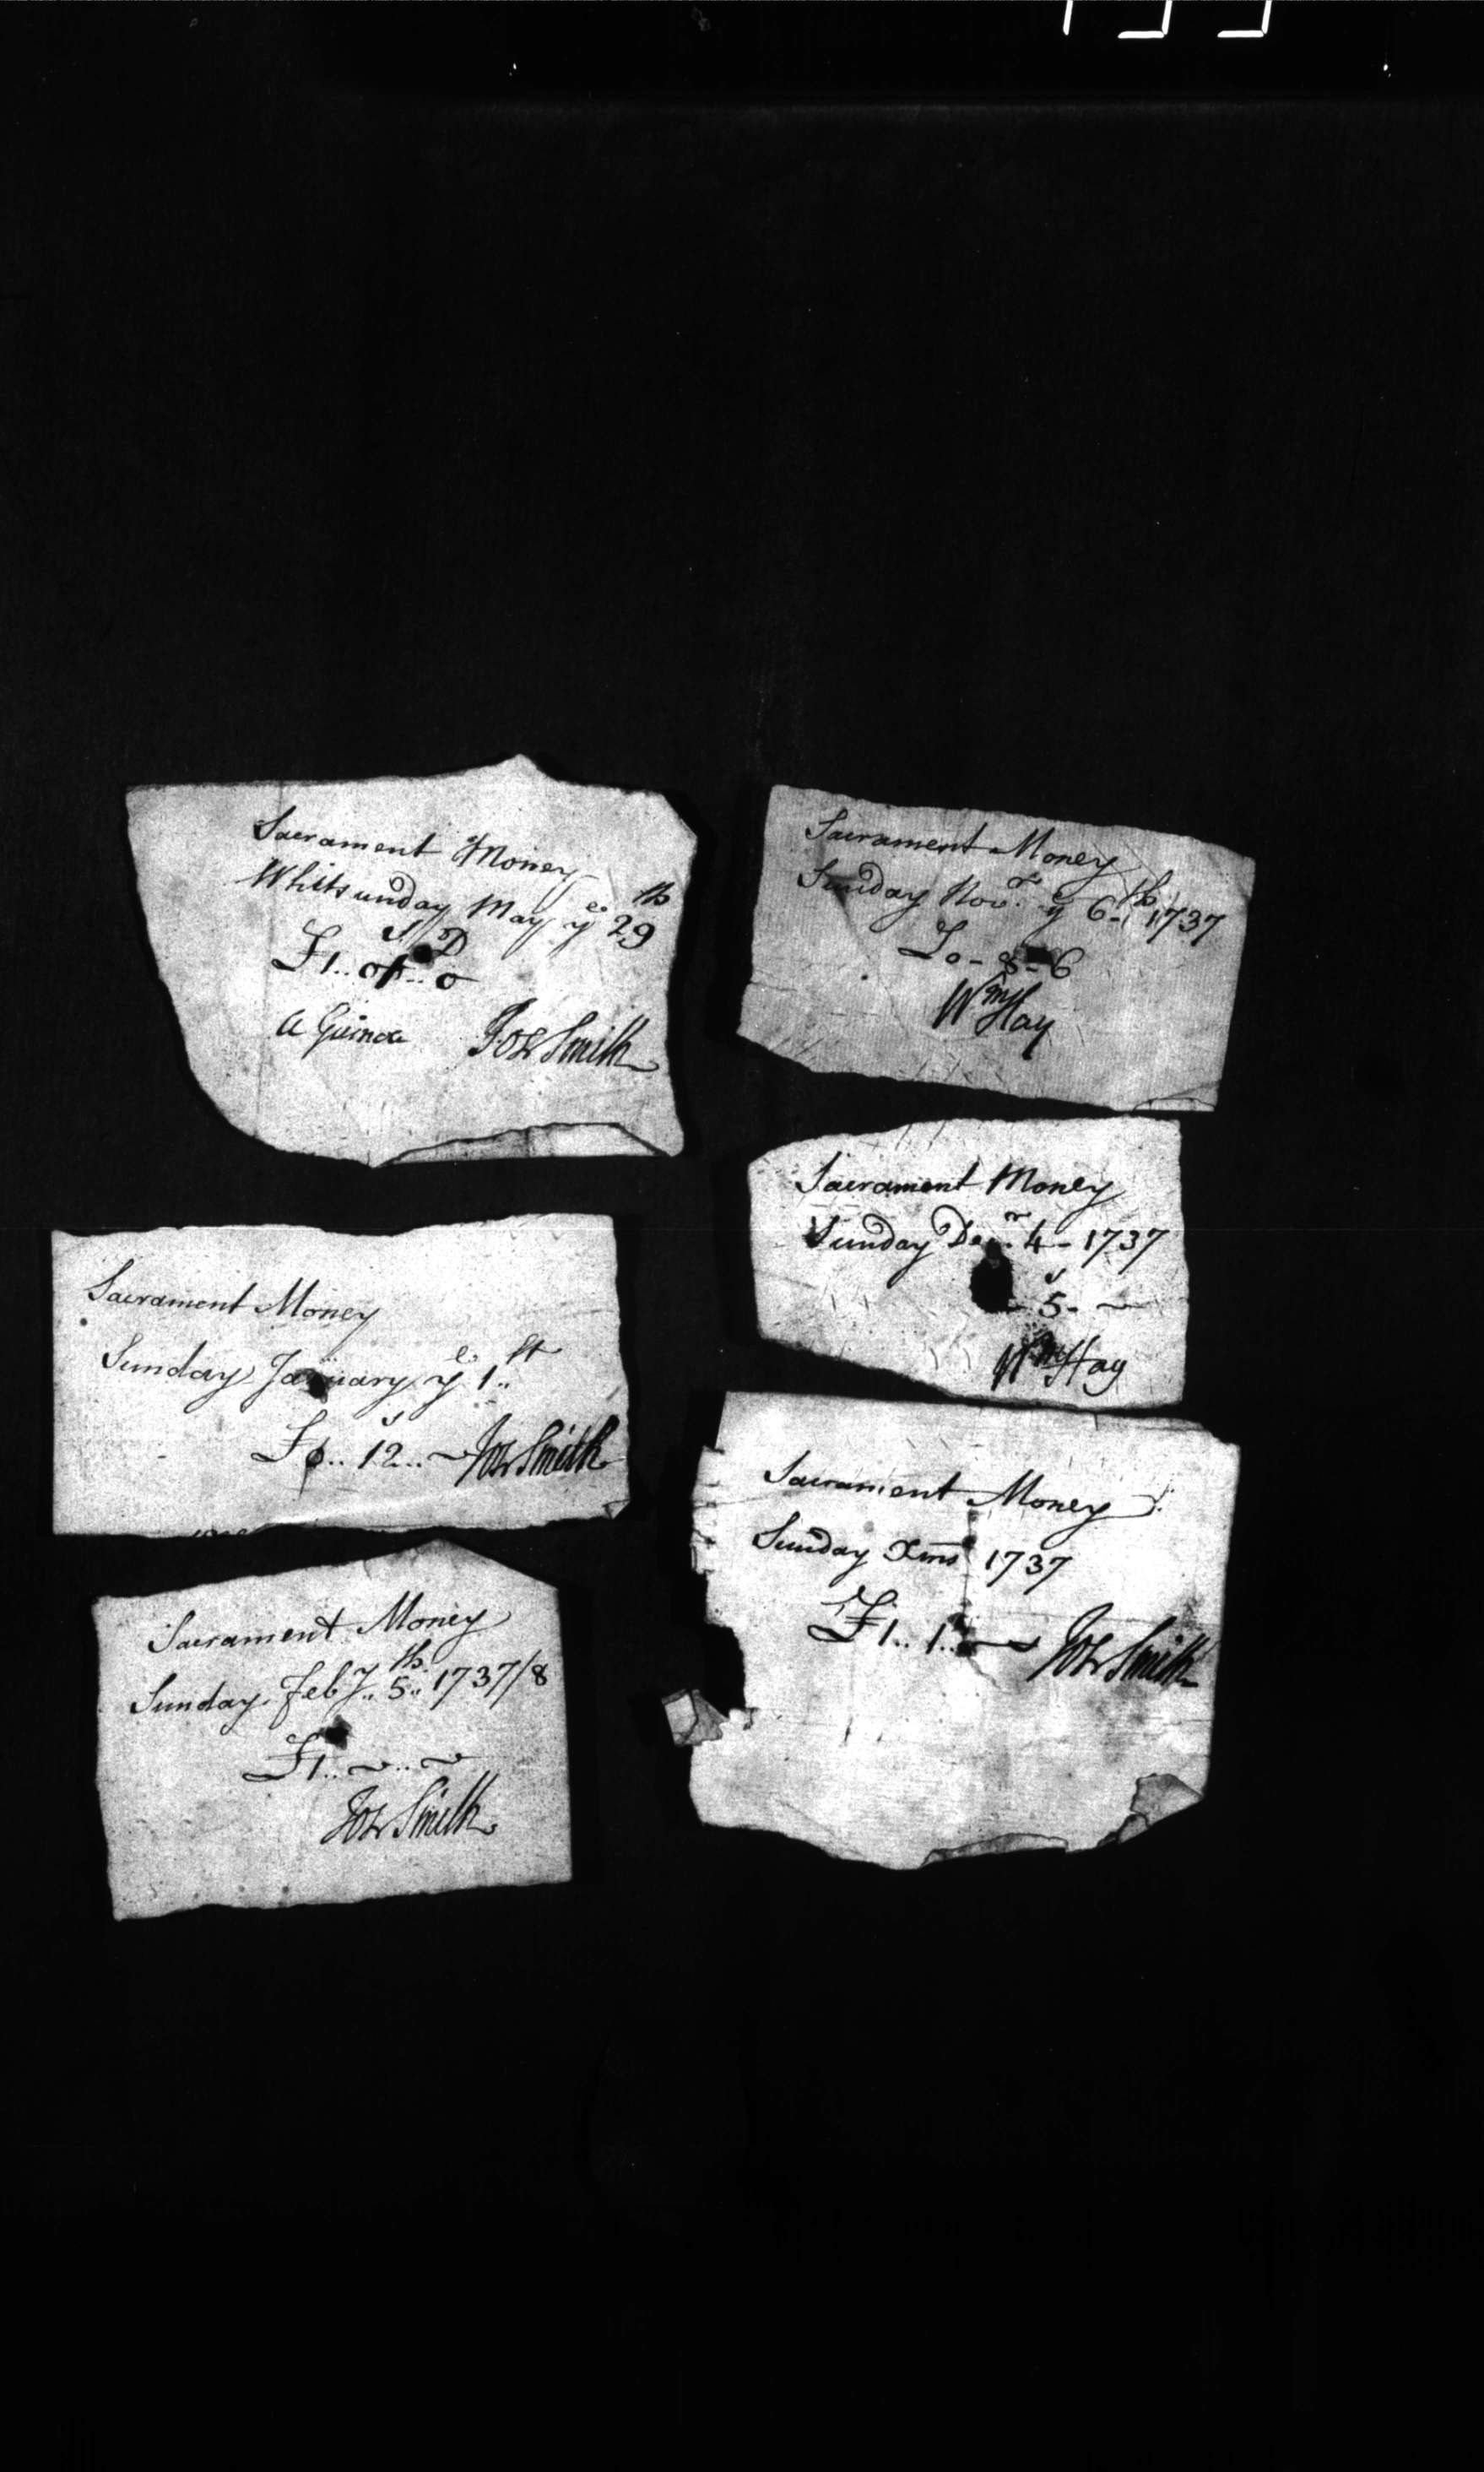 Sacrament Money
Whitsunday May yᵉ 29th
S D
£1..01..0
a Guinea Jos Smith
Sacrament Money
Sunday January yᵉ 1st
s
£0..12..~ Jos Smith
Sacrament Money
Sunday Feby.. 5th.. 1737/8
£1..~..~
Jos Smith
Sacrament Money
Sunday Novr. yᵉ 6th 1737
£0-8-6
Wm Hay
Sacrament Money
Sunday Decr. 4 - 1737
s
5 - ~
Wm Hay
Sacrament Money
Sunday Xms 1737
£1..1..~ Jos Smith